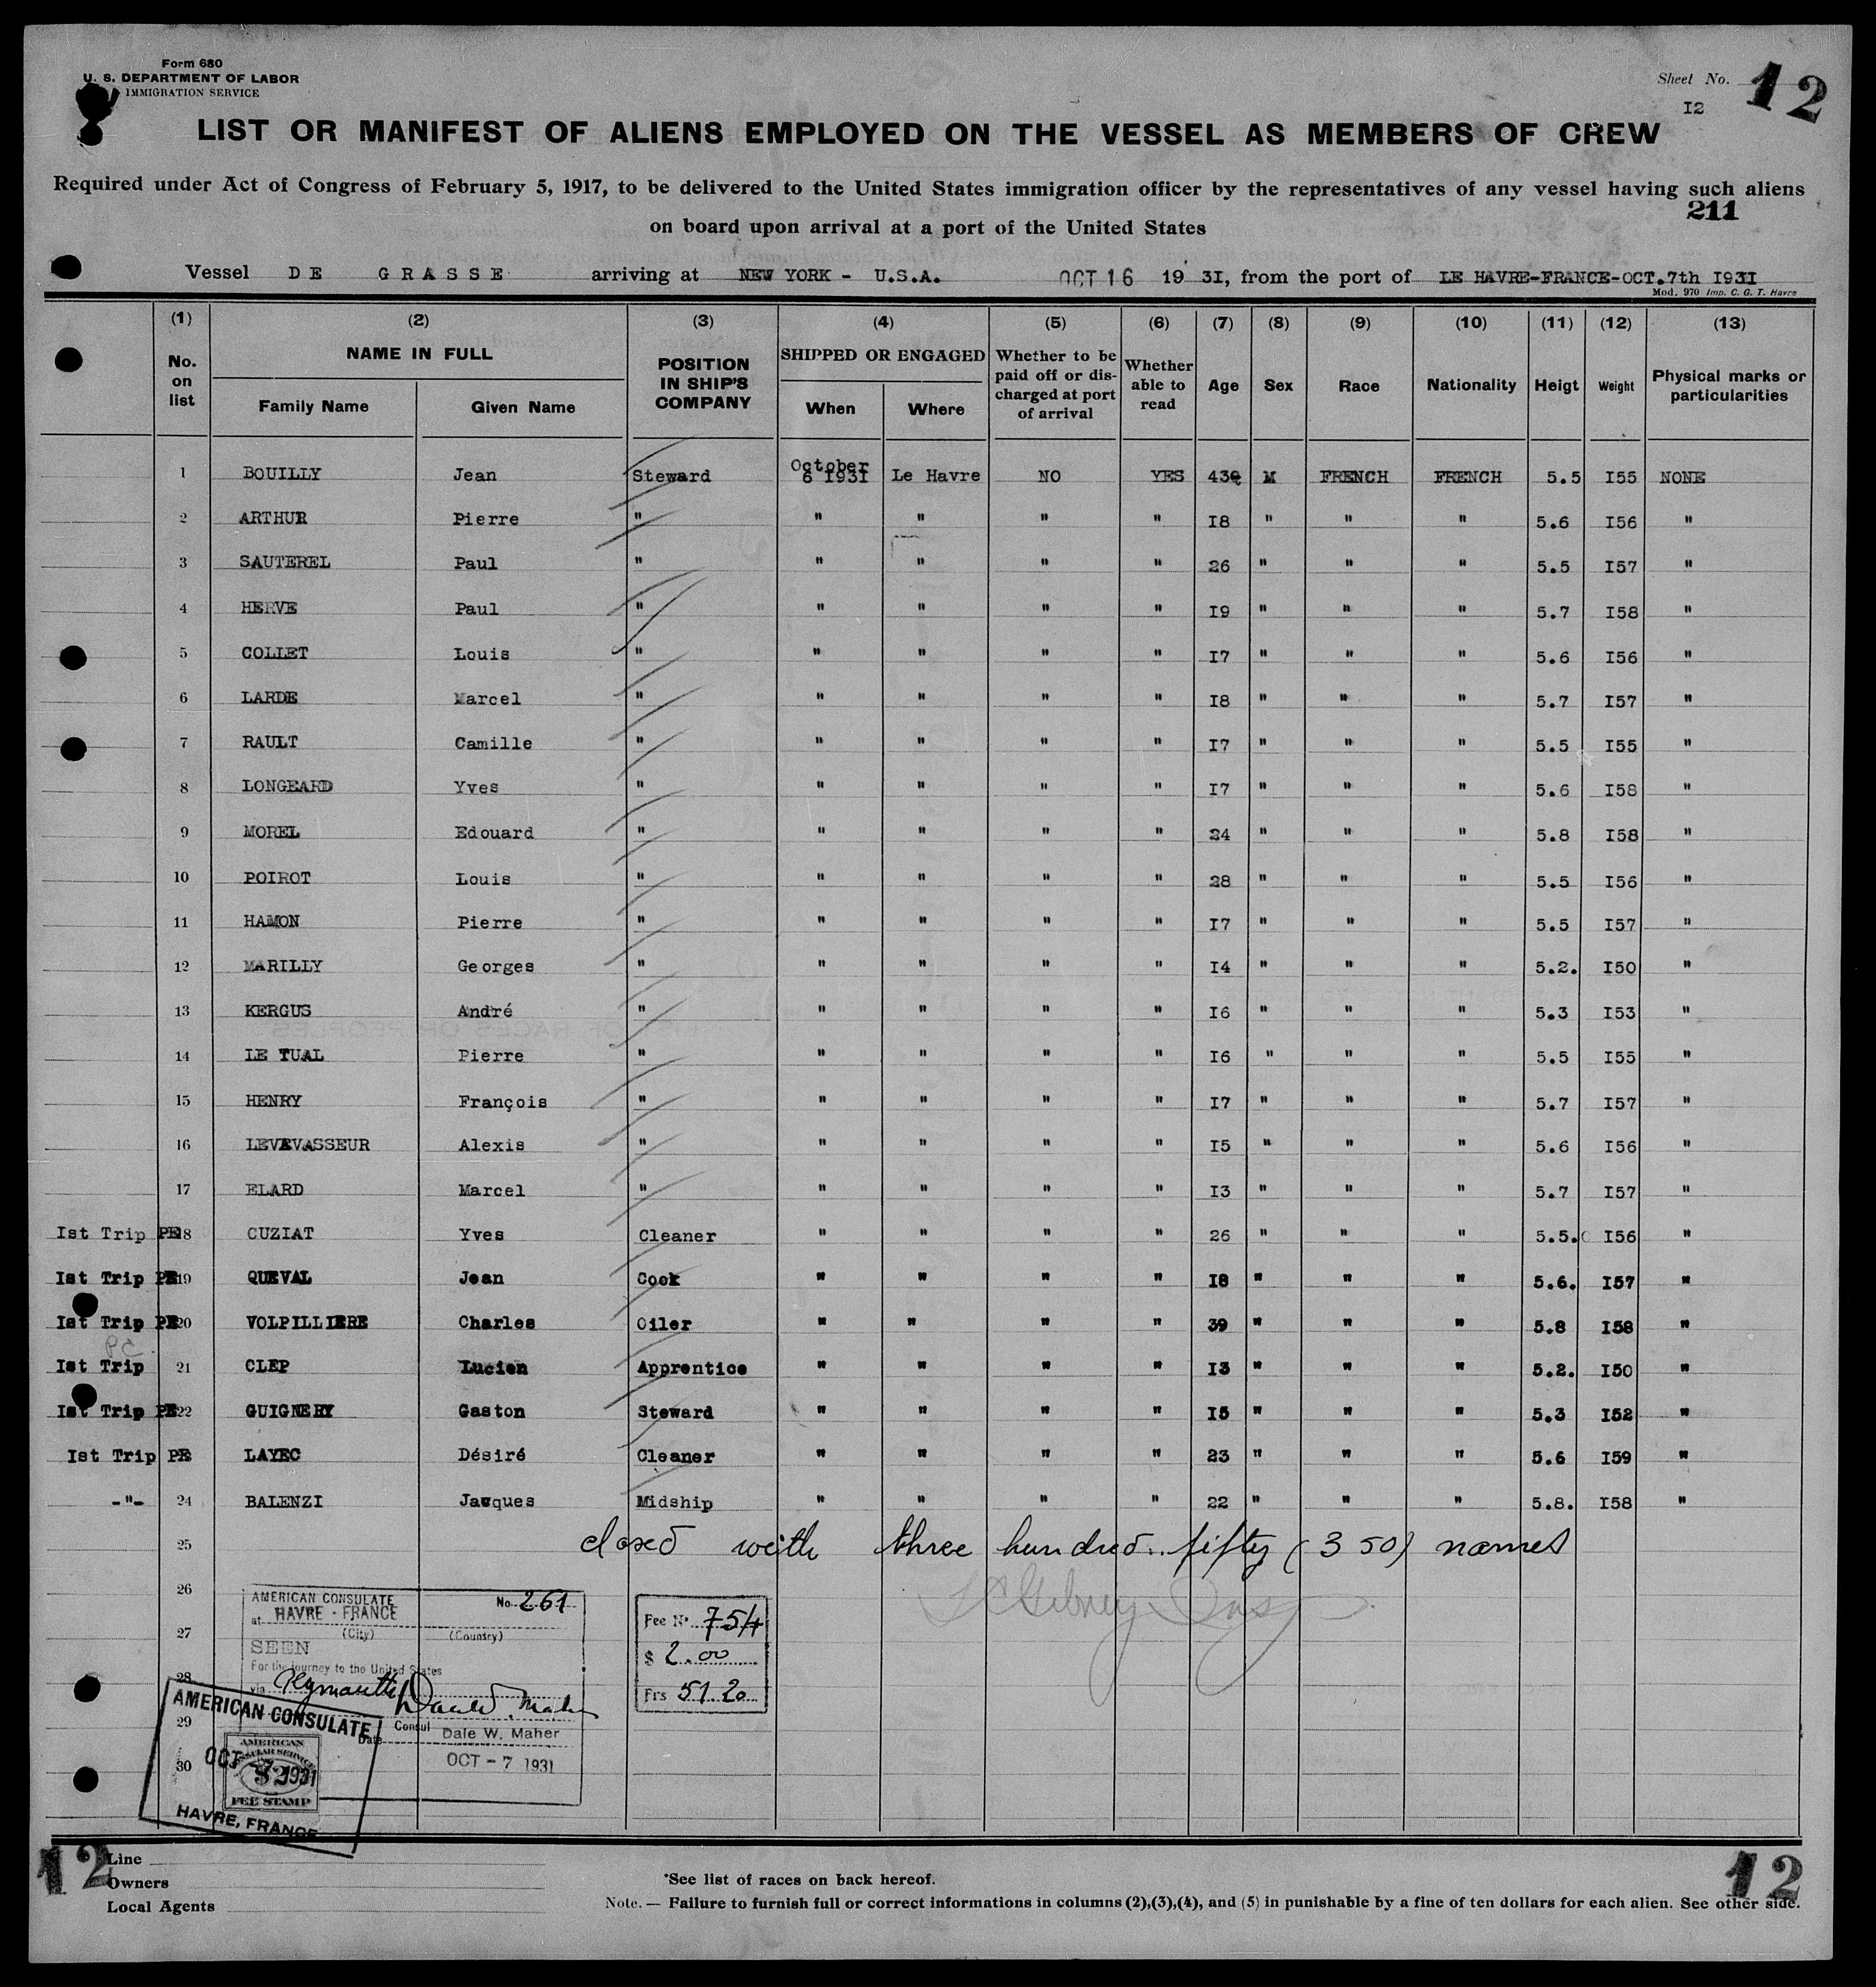 Form 680
U. S. DEPARTMENT OF LABOR
IMMIGRATION SERVICE
Sheet No. 12
I2
LIST OR MANIFEST OF ALIENS EMPLOYED ON THE VESSEL AS MEMBERS OF CREW
Required under Act of Congress of February 5, 1917, to be delivered to the United States immigration officer by the representatives of any vessel having such aliens
211
on board upon arrival at a port of the United States
Vessel DE GRASSE arriving at NEW YORK - U.S.A. OCT 16 19 31, from the port of LE HAVRE-FRANCE-OCT.7th I93I
Mod. 970 Imp. C. G. T. Havre
(1) (2) (3) (4) (5) (6) (7) (8) (9) (10) (11) (12) (13)
No. on list NAME IN FULL Family Name Given Name POSITION IN SHIP'S COMPANY SHIPPED OR ENGAGED When Where Whether to be paid off or discharged at port of arrival Whether able to read Age Sex Race Nationality Heigt Weight Physical marks or particularities
1 BOUILLY Jean Steward October 6 I93I Le Havre NO YES 43 M FRENCH FRENCH 5.5 I55 NONE
2 ARTHUR Pierre " " " " " I8 " " " 5.6 I56 "
3 SAUTEREL Paul " " " " " 26 " " " 5.5 I57 "
4 HERVE Paul " " " " " I9 " " " 5.7 I58 "
5 COLLET Louis " " " " " I7 " " " 5.6 I56 "
6 LARDE Marcel " " " " " I8 " " " 5.7 I57 "
7 RAULT Camille " " " " " I7 " " " 5.5 I55 "
8 LONGEARD Yves " " " " " I7 " " " 5.6 I58 "
9 MOREL Edouard " " " " " 24 " " " 5.8 I58 "
10 POIROT Louis " " " " " 28 " " " 5.5 I56 "
11 HAMON Pierre " " " " " I7 " " " 5.5 I57 "
12 MARILLY Georges " " " " " I4 " " " 5.2. I50 "
13 KERGUS André " " " " " I6 " " " 5.3 I53 "
14 LE TUAL Pierre " " " " " I6 " " " 5.5 I55 "
15 HENRY François " " " " " I7 " " " 5.7 I57 "
16 LEVAVASSEUR Alexis " " " " " I5 " " " 5.6 I56 "
17 ELARD Marcel " " " " " I3 " " " 5.7 I57 "
Ist Trip PE 18 CUZIAT Yves Cleaner " " " " 26 " " " 5.5. I56 "
Ist Trip PE 19 QUEVAL Jean Cook " " " " I8 " " " 5.6. I57 "
Ist Trip PE 20 VOLPILLIERE Charles Oiler " " " " 39 " " " 5.8 I58 "
Ist Trip 21 CLEP Lucien Apprentice " " " " I3 " " " 5.2. I50 "
Ist Trip PE 22 GUIGNERY Gaston Steward " " " " I5 " " " 5.3 I52 "
Ist Trip PE LAYEC Désiré Cleaner " " " " 23 " " " 5.6 I59 "
-"- 24 BALENZI Jacques Midship " " " " 22 " " " 5.8. I58 "
25 closed with three hundred fifty (350) names
26
27
28
29
30
AMERICAN CONSULATE No. 261
at HAVRE - FRANCE
(City) (Country)
SEEN
For the journey to the United States
via Plymouth
Consul Dale W. Maher
Date OCT - 7 1931
Fee No. 754
$ 2.00
Frs 51.20
AMERICAN CONSULATE
OCT - 7 1931
HAVRE, FRANCE
AMERICAN
CONSULAR SERVICE
$2
FEE STAMP
12
Line
Owners
Local Agents
*See list of races on back hereof.
12
Note. — Failure to furnish full or correct informations in columns (2),(3),(4), and (5) in punishable by a fine of ten dollars for each alien. See other side.